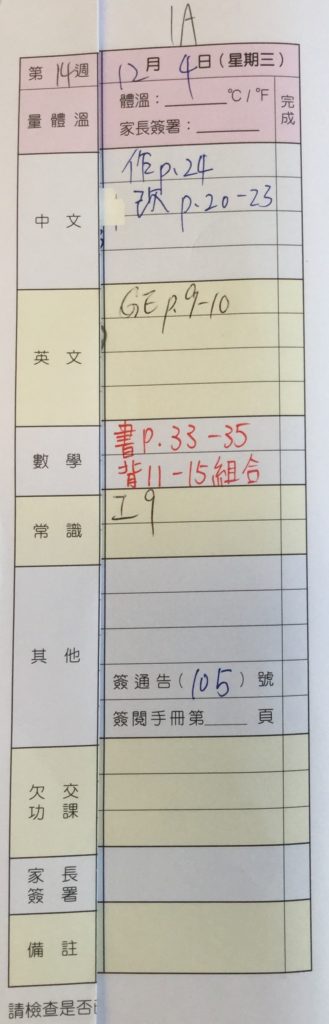 1A
第14週 12月4日(星期三)
量體溫 體溫:______ °C/°F 完成
家長簽署:______
中文 作p.24
改 p.20-23
英文 GE p.9-10
數學 書p.33-35
背11-15組合
常識 工9
其他
簽通告(105)號
簽閱手冊第____頁
欠交功課
家長簽署
備註
請檢查是否